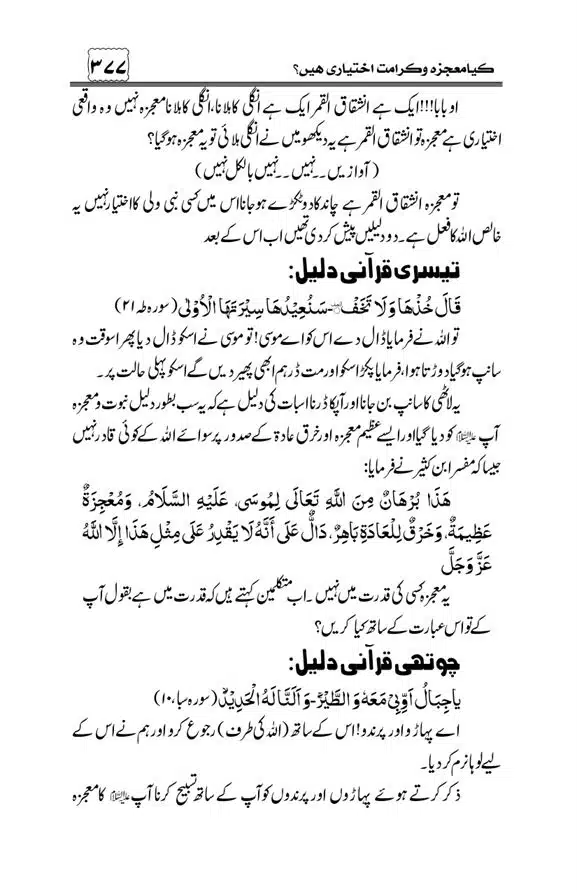 کیا معجزہ و کرامت اختیاری ہیں؟
۳۷۷
او بابا!!! ایک ہے انشقاق القمر ایک ہے انگلی کا ہلانا، انگلی کا ہلانا معجزہ نہیں وہ واقعی
اختیاری ہے معجزہ تو انشقاق القمر ہے یہ دیکھو میں نے انگلی ہلائی تو یہ معجزہ ہوگیا؟
(آوازیں۔۔نہیں۔۔نہیں بالکل نہیں)
تو معجزہ انشقاق القمر ہے چاند کا دو ٹکڑے ہو جانا اس میں کسی نبی ولی کا اختیار نہیں یہ
خالص اللہ کا فعل ہے۔ دو دلیلیں پیش کر دی تھیں اب اس کے بعد
تیسری قرآنی دلیل:
قَالَ خُذْهَا وَلَا تَخَفْ۔سَنُعِيدُهَا سِيْرَتَهَا الْاُوْلٰى (سورہ طہ ۲۱)
تو اللہ نے فرمایا ڈال دے اس کو اے موسی! تو موسی نے اسکو ڈال دیا پھر اسوقت وہ
سانپ ہو گیا دوڑتا ہوا، فرمایا پکڑ اسکو اور مت ڈر ہم ابھی پھیر دیں گے اسکو پہلی حالت پر۔
یہ لاٹھی کا سانپ بن جانا اور آپکا ڈرنا اسبات کی دلیل ہے کہ یہ سب بطور دلیل نبوت و معجزہ
آپ علیہ السلام کو دیا گیا اور ایسے عظیم معجزہ اور خرق عادۃ کے صدور پر سوائے اللہ کے کوئی قادر نہیں
جیسا کہ مفسر ابن کثیر نے فرمایا:
هَذَا بُرْهَانٌ مِنَ اللَّهِ تَعَالَى لِمُوسَى، عَلَيْهِ السَّلَامُ، وَمُعْجِزَةٌ
عَظِيمَةٌ، وَخَرْقٌ لِلْعَادَةِ بَاهِرٌ، دَالٌّ عَلَى أَنَّهُ لَا يَقْدِرُ عَلَى مِثْلِ هَذَا إِلَّا اللَّهُ
عَزَّ وَجَلَّ
یہ معجزہ کسی کی قدرت میں نہیں۔ اب متکلمین کہتے ہیں کہ قدرت میں ہے بقول آپ
کے تو اس عبارت کے ساتھ کیا کریں؟
چوتھی قرآنی دلیل:
یاجِبَالُ اَوِّبِیْ مَعَهٗ وَ الطَّيْرَ۔وَ اَلَنَّا لَهُ الْحَدِيْدَ (سورہ سبا، ۱۰)
اے پہاڑو اور پرندو! اس کے ساتھ (اللہ کی طرف) رجوع کرو اور ہم نے اس کے
لیے لوہا نرم کر دیا۔
ذکر کرتے ہوئے پہاڑوں اور پرندوں کو آپ کے ساتھ تسبیح کرنا آپ علیہ السلام کا معجزہ